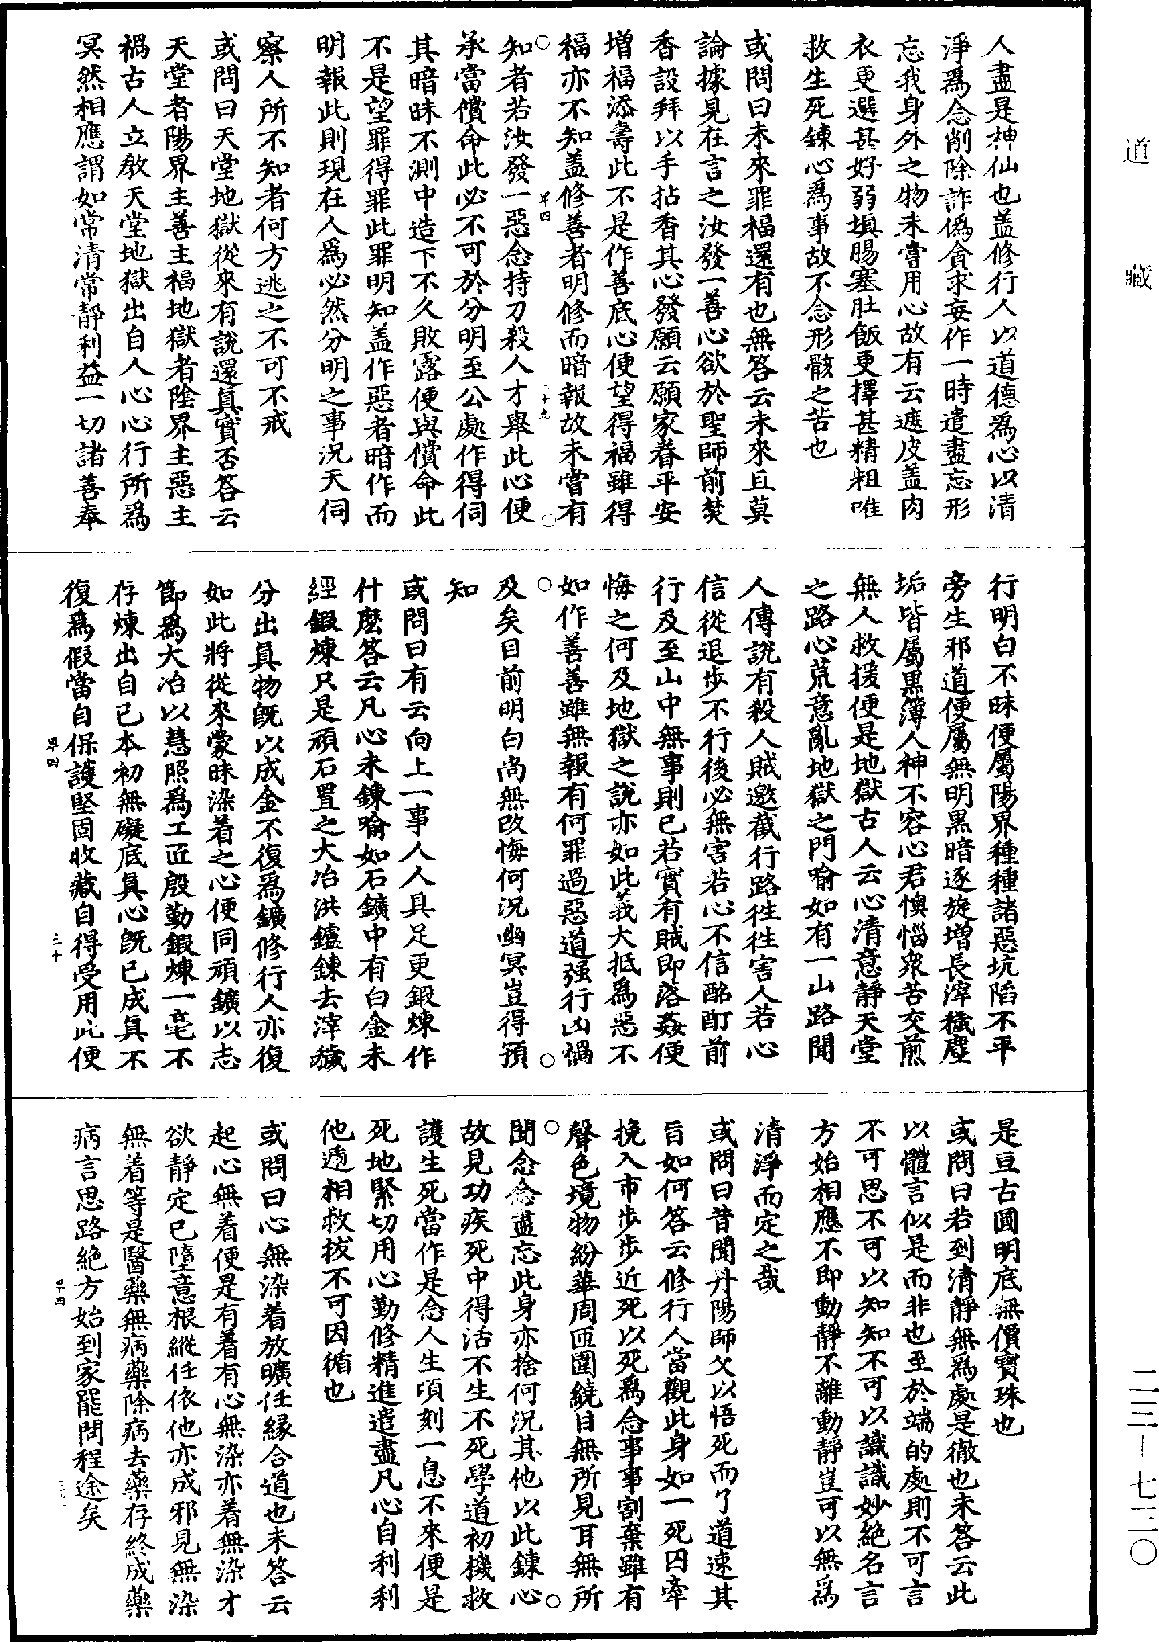 道藏
人盡是神仙也盖修行人以道德爲心以清
淨爲念削除詐僞貪求妄作一時遣盡忘形
忘我身外之物未嘗用心故有云遮皮蓋肉
衣更選甚好弱塡腸塞肚飯更擇甚精粗唯
救生死鍊心爲事故不念形骸之苦也
或問曰未來罪福還有也無答云未來且莫
論據見在言之汝發一善心欲於聖師前焚
香設拜以手拈香其心發願云願家眷平安
增福添壽此不是作善底心便望得福雖得
福亦不知盖修善者明修而暗報故未嘗有
知者若汝發一惡念持刀殺人才舉此心便
承當償命此必不可於分明至公處作得伺
其暗昧不測中造下不久敗露便與償命此
不是望罪得罪此罪明知盖作惡者暗作而
明報此則現在人爲必然分明之事況天伺
察人所不知者何方逃之不可不戒
或問曰天堂地獄從來有說還真實否答云
天堂者陽界主善主福地獄者陰界主惡主
禍古人立教天堂地獄出自人心心行所爲
冥然相應謂如常清常靜利益一切諸善奉
行明白不昧便屬陽界種種諸惡坑陷不平
旁生邪道便屬無明黑暗逐旋增長滓穢塵
垢皆屬黑簿人神不容心君懊惱衆苦交煎
無人救援便是地獄古人云心清意靜天堂
之路心荒意亂地獄之門喻如有一山路聞
人傳說有殺人賊邀截行路徃徃害人若心
信從退步不行後必無害若心不信酩酊前
行及至山中無事則已若實有賊即落姦便
悔之何及地獄之說亦如此義大抵爲惡不
如作善善雖無報有何罪過惡道强行凶禍
及矣目前明白尚無改悔何況幽冥豈得預
知
或問曰有云向上一事人人具足更鍛煉作
什麼答云凡心未鍊喻如石鑛中有白金未
經鍛煉只是頑石置之大冶洪鑪鍊去滓穢
分出真物旣以成金不復爲鑛修行人亦復
如此將從來蒙昧染着之心便同頑鑛以志
節爲大冶以慧照爲工匠殷勤鍛煉一毫不
存煉出自己本初無礙底真心旣已成真不
復爲假當自保護堅固收藏自得受用此便
是亘古圓明底無價寶珠也
或問曰若到清靜無爲處是徹也未答云此
以體言似是而非也至於端的處則不可言
不可思不可以知知不可以識識妙絕名言
方始相應不即動靜不離動靜豈可以無爲
清淨而定之哉
或問曰昔聞丹陽師父以悟死而了道速其
旨如何答云修行人當觀此身如一死囚牽
挽入市步步近死以死爲念事事割棄雖有
聲色境物紛華周匝圍繞目無所見耳無所
聞念念盡忘此身亦捨何況其他以此鍊心
故見功疾死中得活不生不死學道初機救
護生死當作是念人生頃刻一息不來便是
死地緊切用心勤修精進遣盡凡心自利利
他遞相救拔不可因循也
或問曰心無染着放曠任緣合道也未答云
起心無着便是有着有心無染亦着無染才
欲靜定已墮意根縱任依他亦成邪見無染
無着等是醫藥無病藥除病去藥存終成藥
病言思路絕方始到家罷問程途矣
二三—七三〇